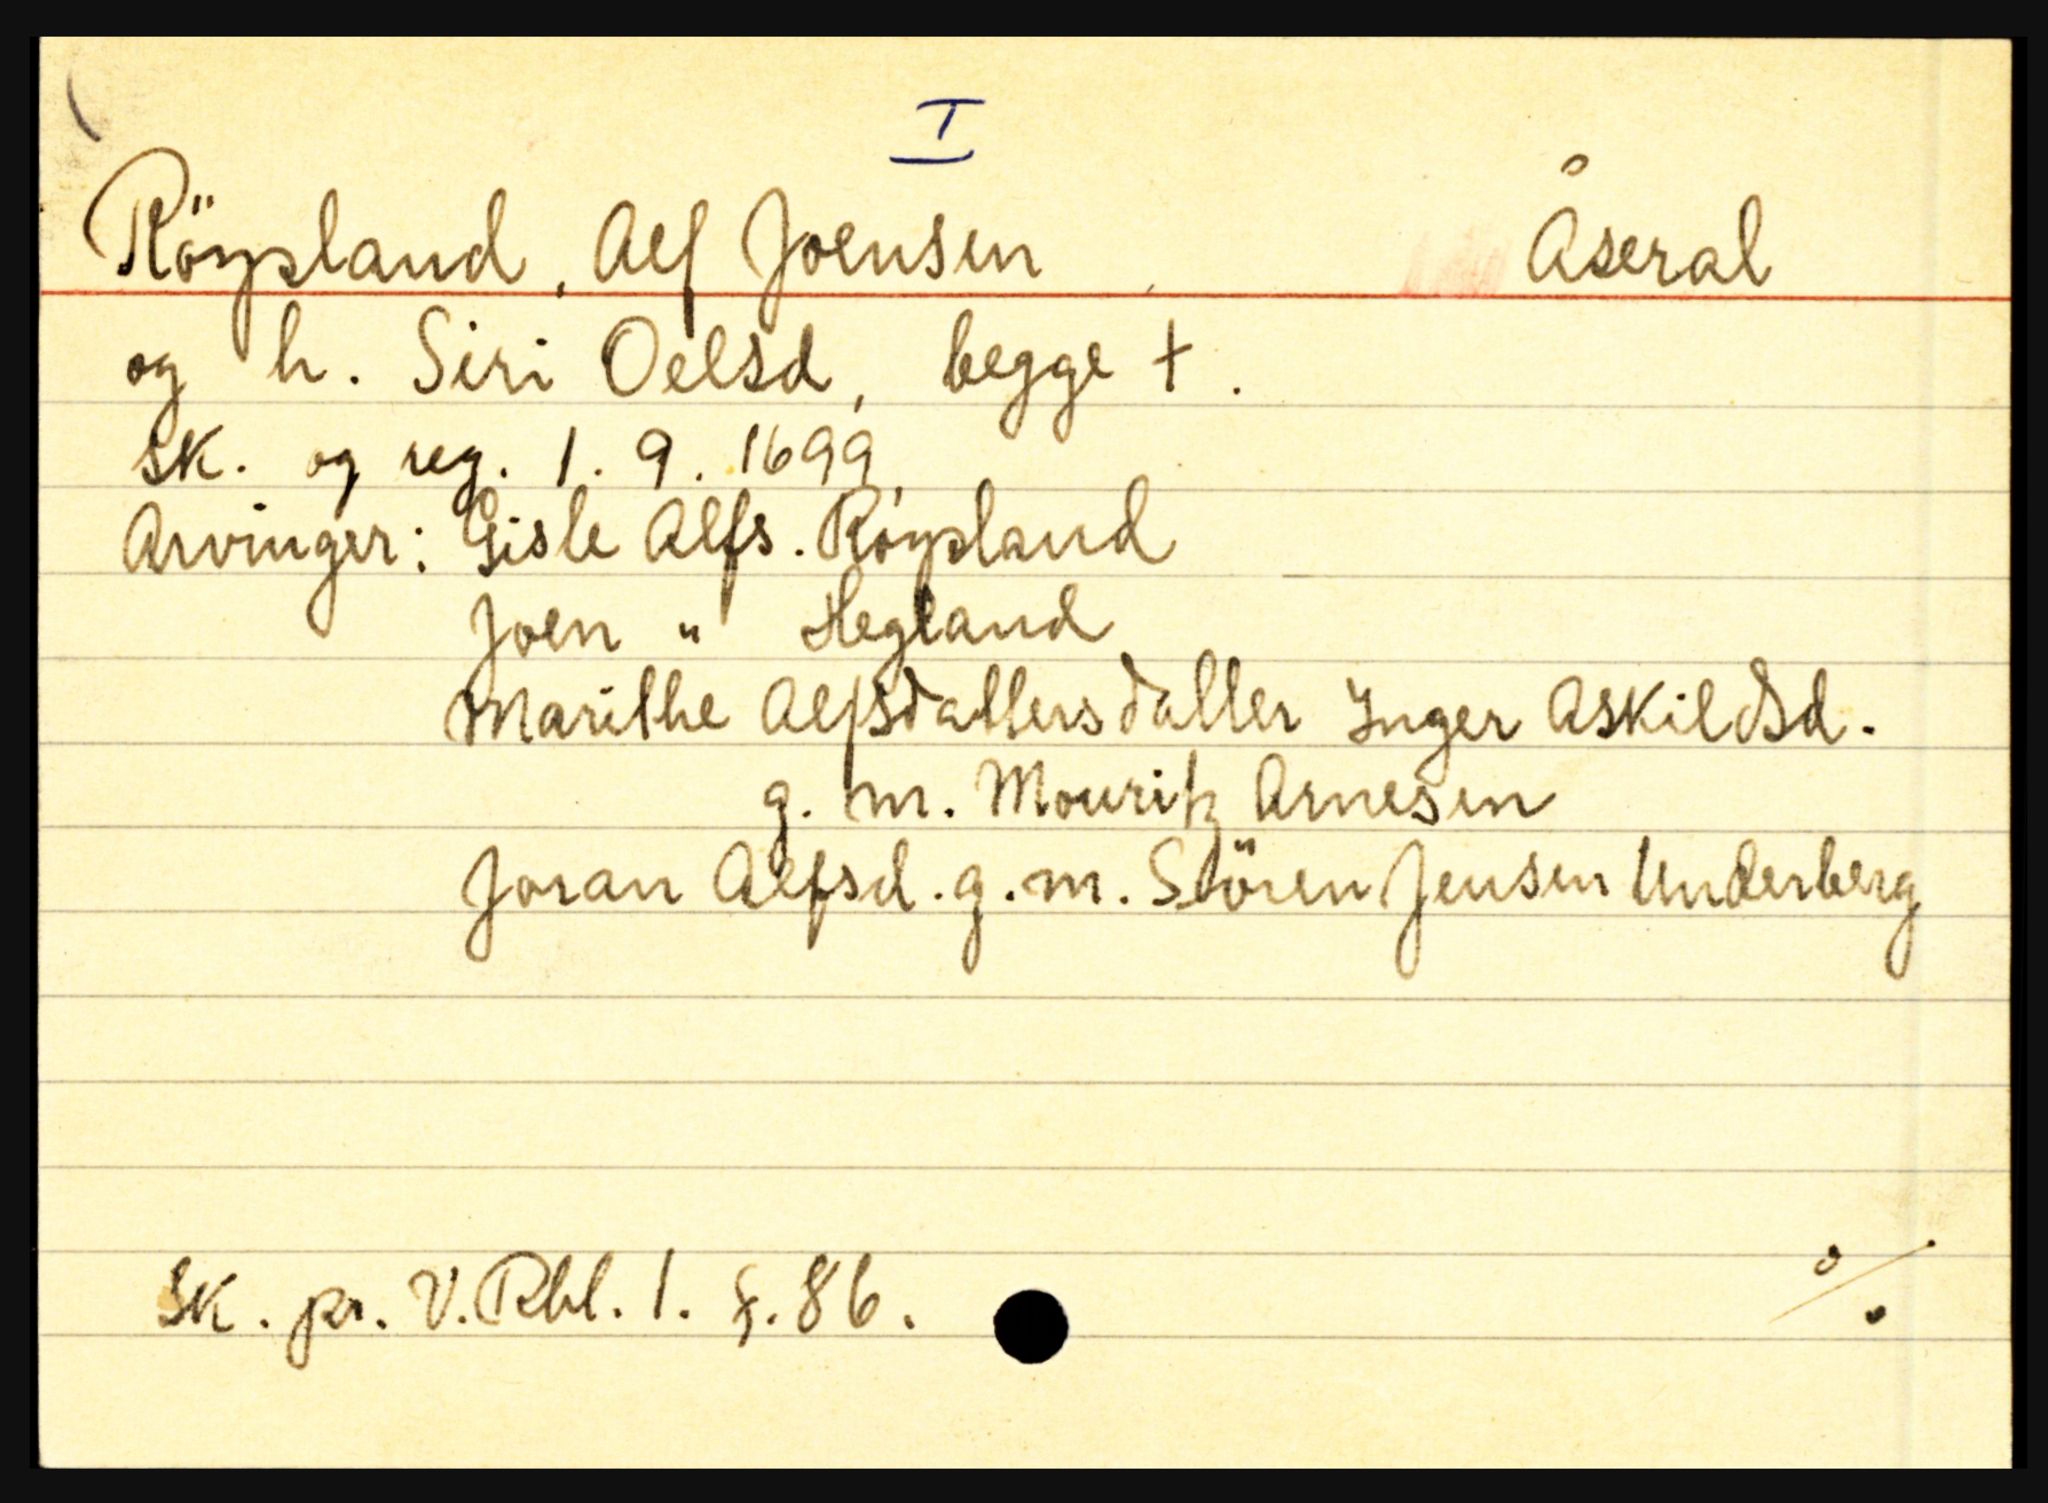 I
Röysland, Alf Joensen Åseral
og h. Siri Oelsd, begge †.
Sk. og reg. 1. 9. 1699,
Arvinger: Gisle Alfs. Röysland
Joen " Hegland
Marithe Alfsdatters datter Inger Askildsd.
g. m. Mouritz Arnesen
Joran Alfsd. g. m. Stören Jensen Underberg
Sk. pr. V. Rbl. 1. f. 86.
%